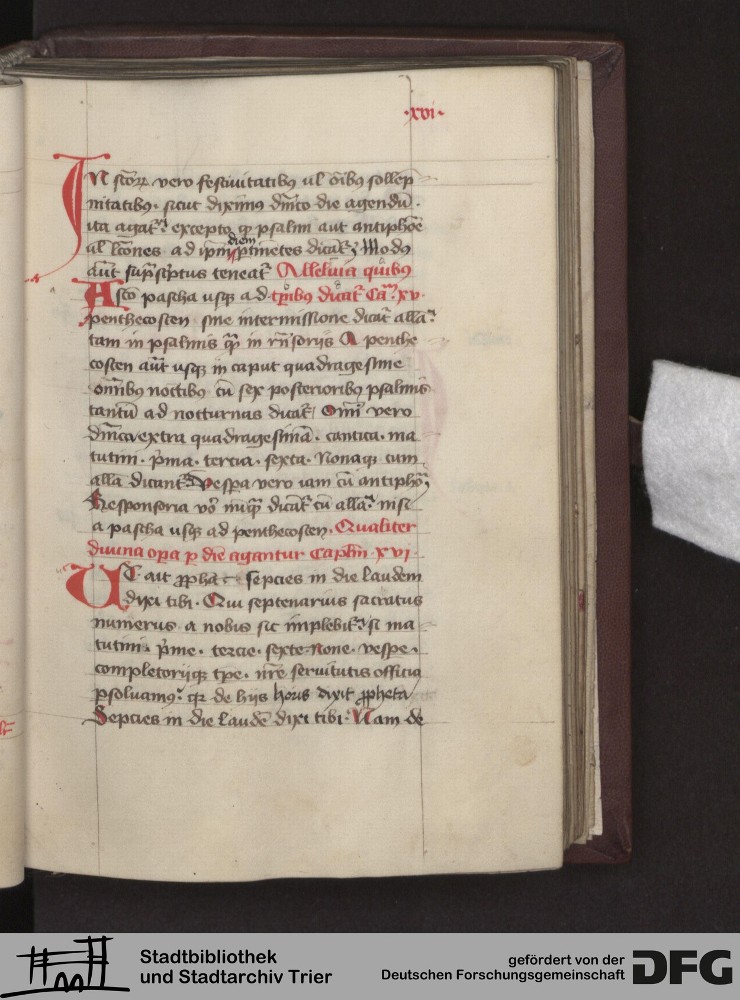 ·xvi·
IN scõrꝝ vero festiuitatibꝫ ul õibꝫ sollep̃
nitatibꝫ. sicut diximꝰ dm̃co die agendũ.
ita agat᷑ excepto qꝫ psalmi aut antiphõe
ul lc̃ones ad ipm̃ diem ptinẽtes dicãt᷑ Modꝰ
aũt sup̃sc̃ptus teneat᷑ Alleluia quibꝫ
A sc̃o pascha usqꝫ ad. tp̃ribꝫ dicat᷑ Ca. xv.
penthecosten sine intermissione dicat᷑ alla᷑
tam in psalmis qᷓ in rñsoriis A penthe
costen aũt usqꝫ in caput quadragesime
omĩbꝫ noctibꝫ cũ sex posterioribꝫ psalmis
tantũ ad nocturnas dicat᷑ Omĩ vero
dm̃ca extra quadragesimã. cantica. ma
tutini. p̃ma. tercia. sexta. Nonaqꝫ cum
alla dicant᷑ Vespa vero iam cũ antiphõ
Responsoria vo nũqᷓ dicãt᷑ cũ alla᷑ nisi
a pascha usqꝫ ad penthecosten. Qualiter
diuina opa p diẽ agantur Caplm̃ xvi
UT ait ꝓpheta septies in die laudem
dixi tibi. Qui septenarius sacratus
numerus a nobis sic implebit᷑ si ma
tutini. p̃me. tercie. sexte. none. vespe.
completoriiqꝫ tp̃e. nr̃e seruitutis officia
psoluamꝰ. qꝛ de hijs horis dixit ꝓpheta
Septies in die laudẽ dixi tibi. Nam de
Stadtbibliothek
und Stadtarchiv Trier
gefördert von der
Deutschen Forschungsgemeinschaft
DFG